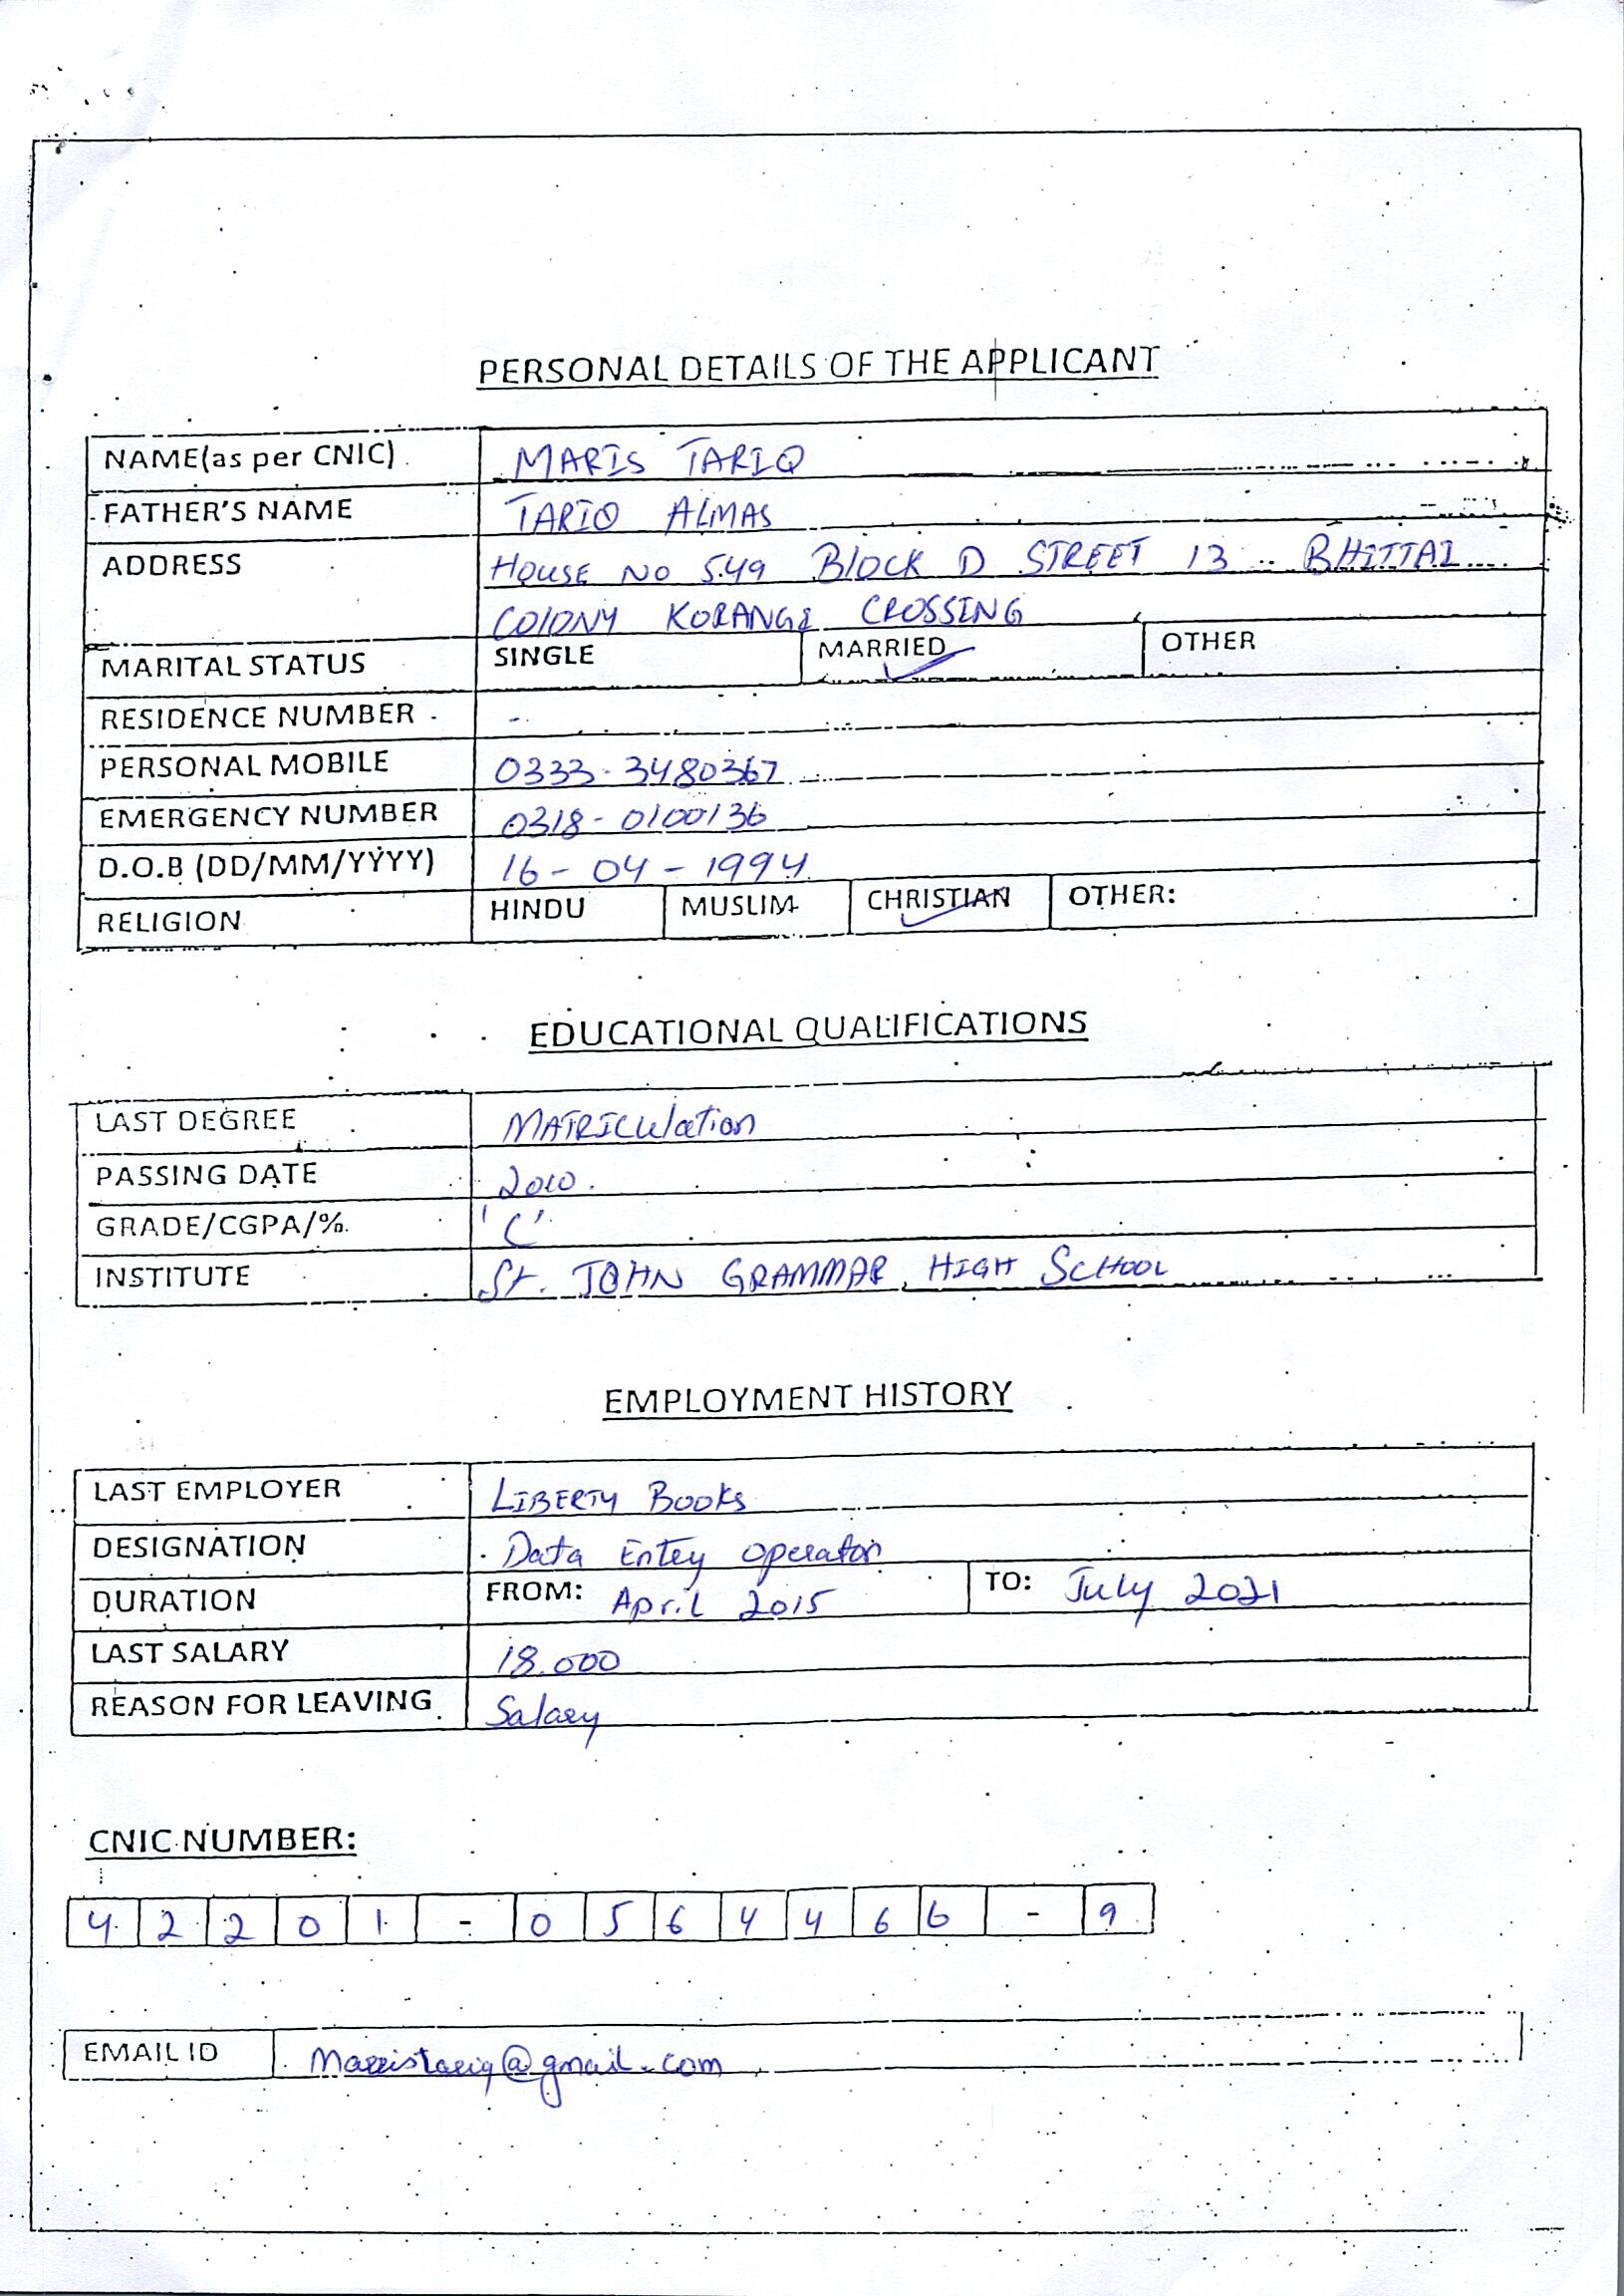 PERSONAL DETAILS OF THE APPLICANT
NAME(as per CNIC) MARIS TARIQ
FATHER'S NAME TARIQ ALMAS
ADDRESS HOUSE NO 549 BlOCK D STREET 13 BHITTAI
COlONY KORANGI CROSSING
MARITAL STATUS SINGLE MARRIED OTHER
RESIDENCE NUMBER -
PERSONAL MOBILE 0333-3480367
EMERGENCY NUMBER 0318-0100136
D.O.B (DD/MM/YYYY) 16-04-1994
RELIGION HINDU MUSLIM CHRISTIAN OTHER:
EDUCATIONAL QUALIFICATIONS
LAST DEGREE MATRICUlation
PASSING DATE 2010.
GRADE/CGPA/% 'C'
INSTITUTE St. JOHN GRAMMAR HIGH SCHOOL
EMPLOYMENT HISTORY
LAST EMPLOYER LIBERTY BOOKS
DESIGNATION Data Entry operator
DURATION FROM: April 2015 TO: July 2021
LAST SALARY 18.000
REASON FOR LEAVING Salary
CNIC NUMBER:
42201-0564466-9
EMAIL ID Marristariq@gmail.com